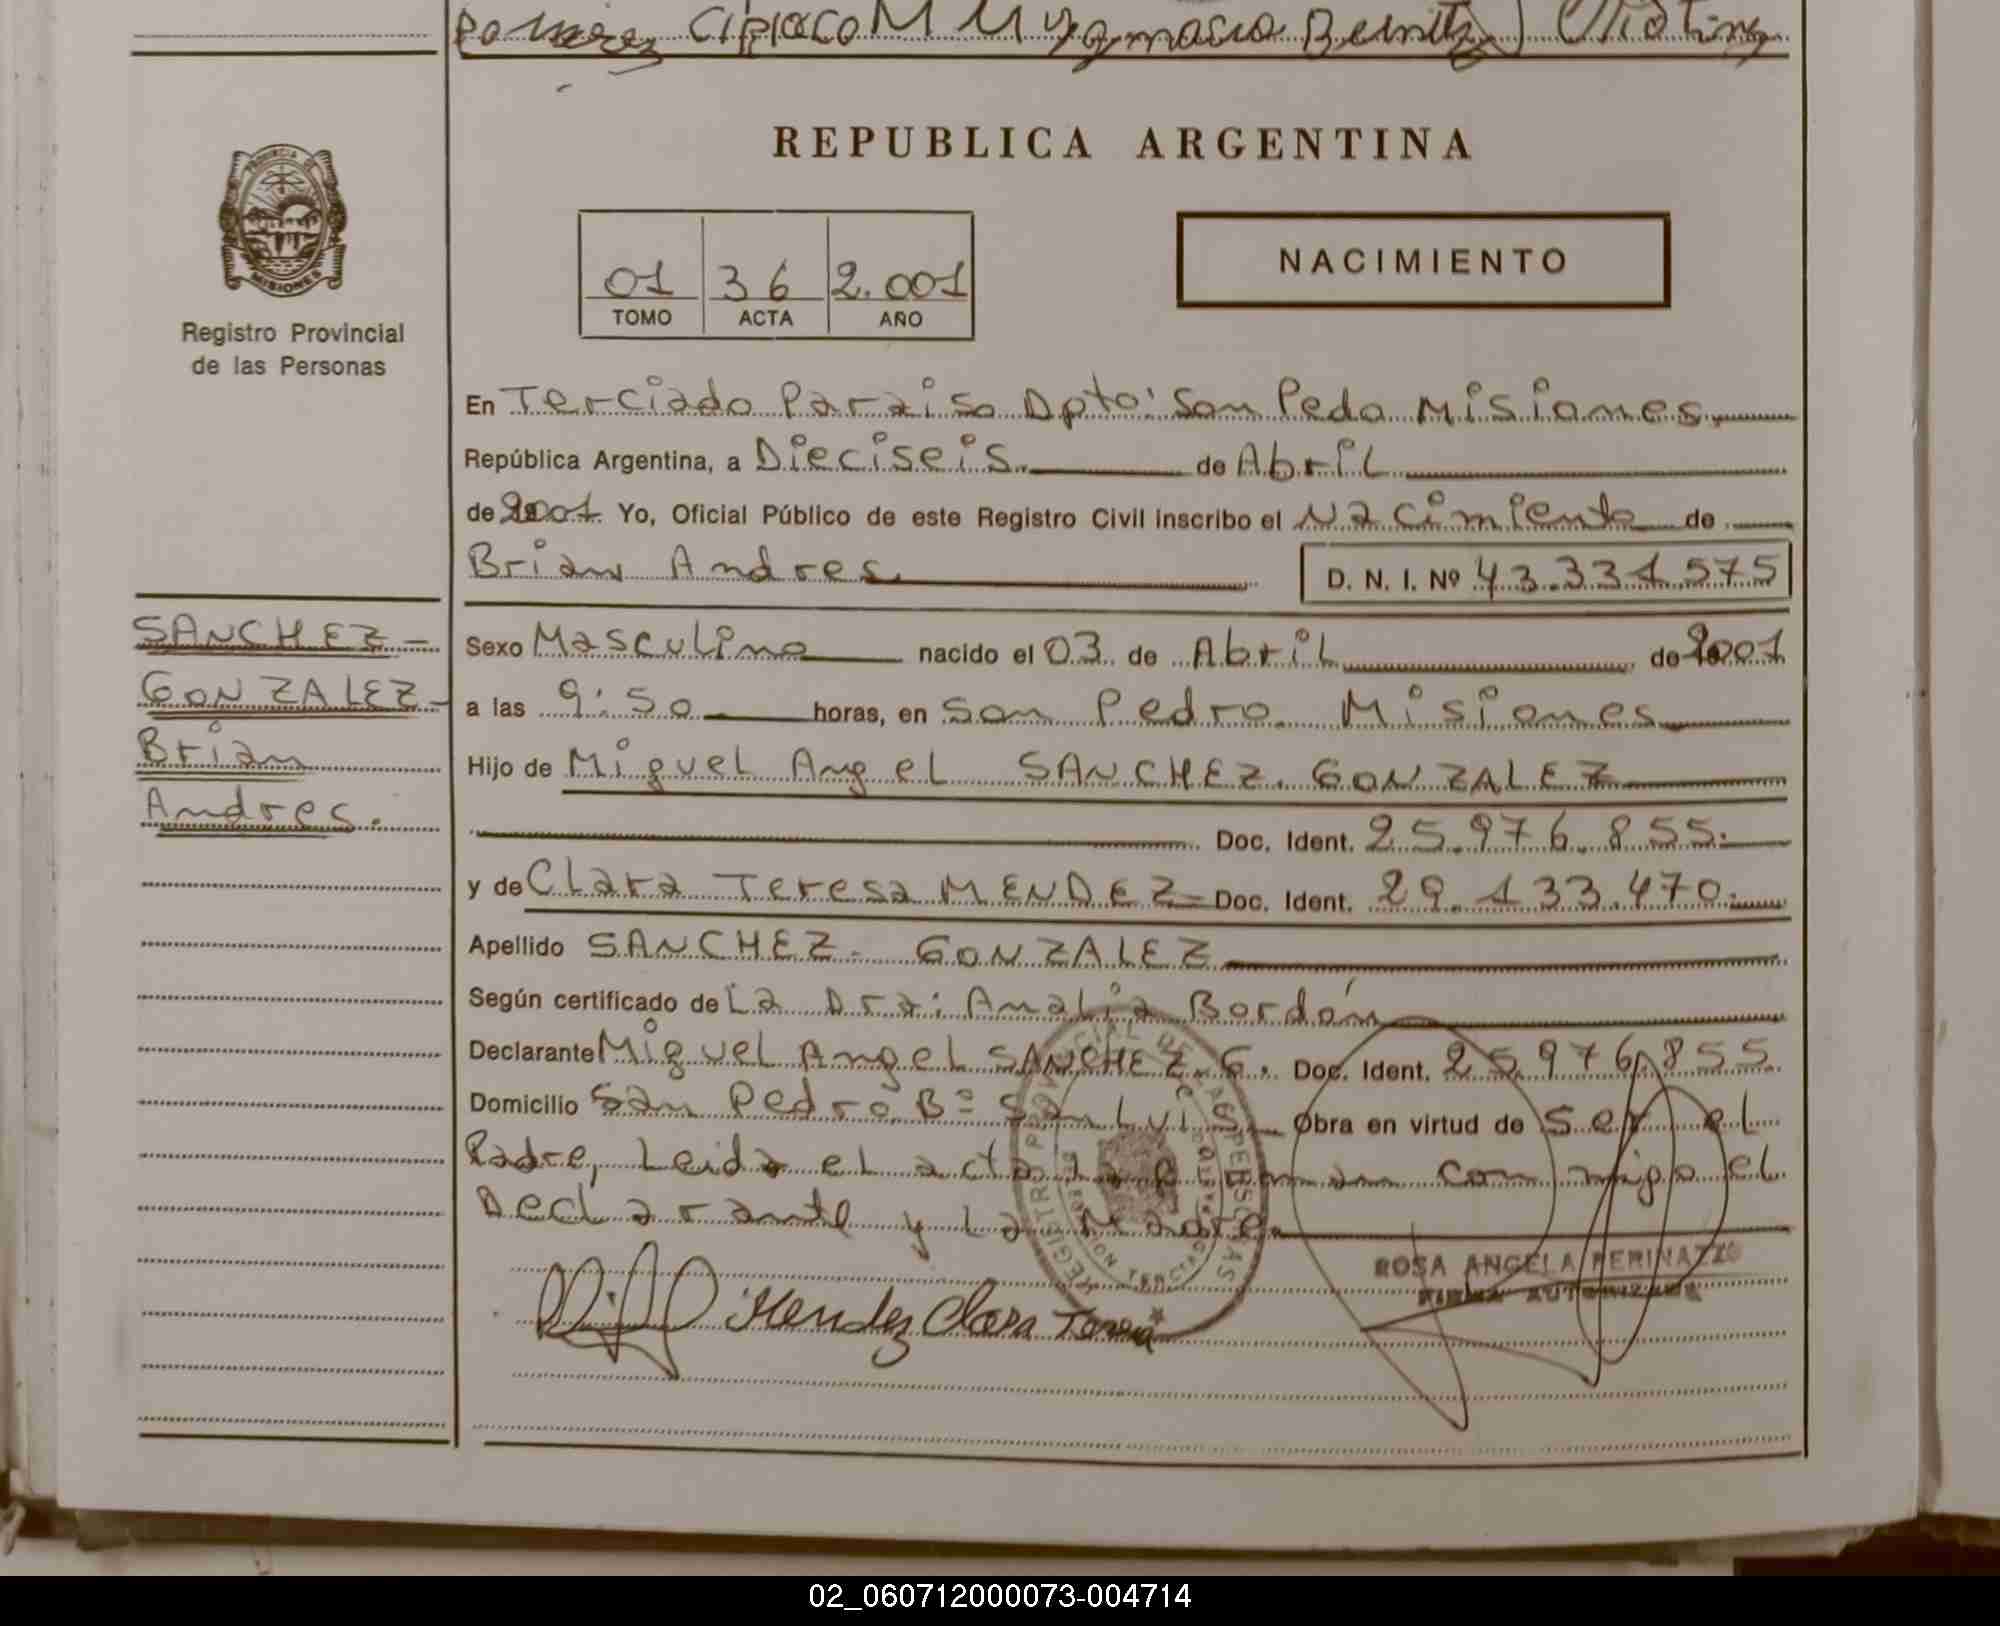 Cipriaco M Benitez
REPUBLICA ARGENTINA
PROVINCIA DE
MISIONES
Registro Provincial
de las Personas
01 36 2.001
TOMO ACTA AÑO
NACIMIENTO
En Terciado Paraiso Dpto: San Pedo Misiones.
República Argentina, a Dieciseis. de Abril
de 2001. Yo, Oficial Público de este Registro Civil inscribo el Nacimiento de
Brian Andres. D. N. I. Nº 43.331.575
SANCHEZ-
GONZALEZ-
Brian
Andres.
Sexo Masculino nacido el 03 de Abril de 2001
a las 9:50 horas, en San Pedro Misiones
Hijo de Miguel Angel SANCHEZ. GONZALEZ
Doc. Ident. 25.976.855.
y de Clara Teresa MENDEZ Doc. Ident. 29.133.470.
Apellido SANCHEZ. GONZALEZ
Según certificado de La Dra: Analia Bordón
Declarante Miguel Angel SANCHEZ G. Doc. Ident. 25.976.855.
Domicilio San Pedro Bº San Luis Obra en virtud de ser el
Padre, Leida el acta la firman conmigo el
Declarante y La Madre.
ROSA ANGELA PERINAZZO
FIRMA AUTORIZADA
Mendez Clara Teresa
02_060712000073-004714